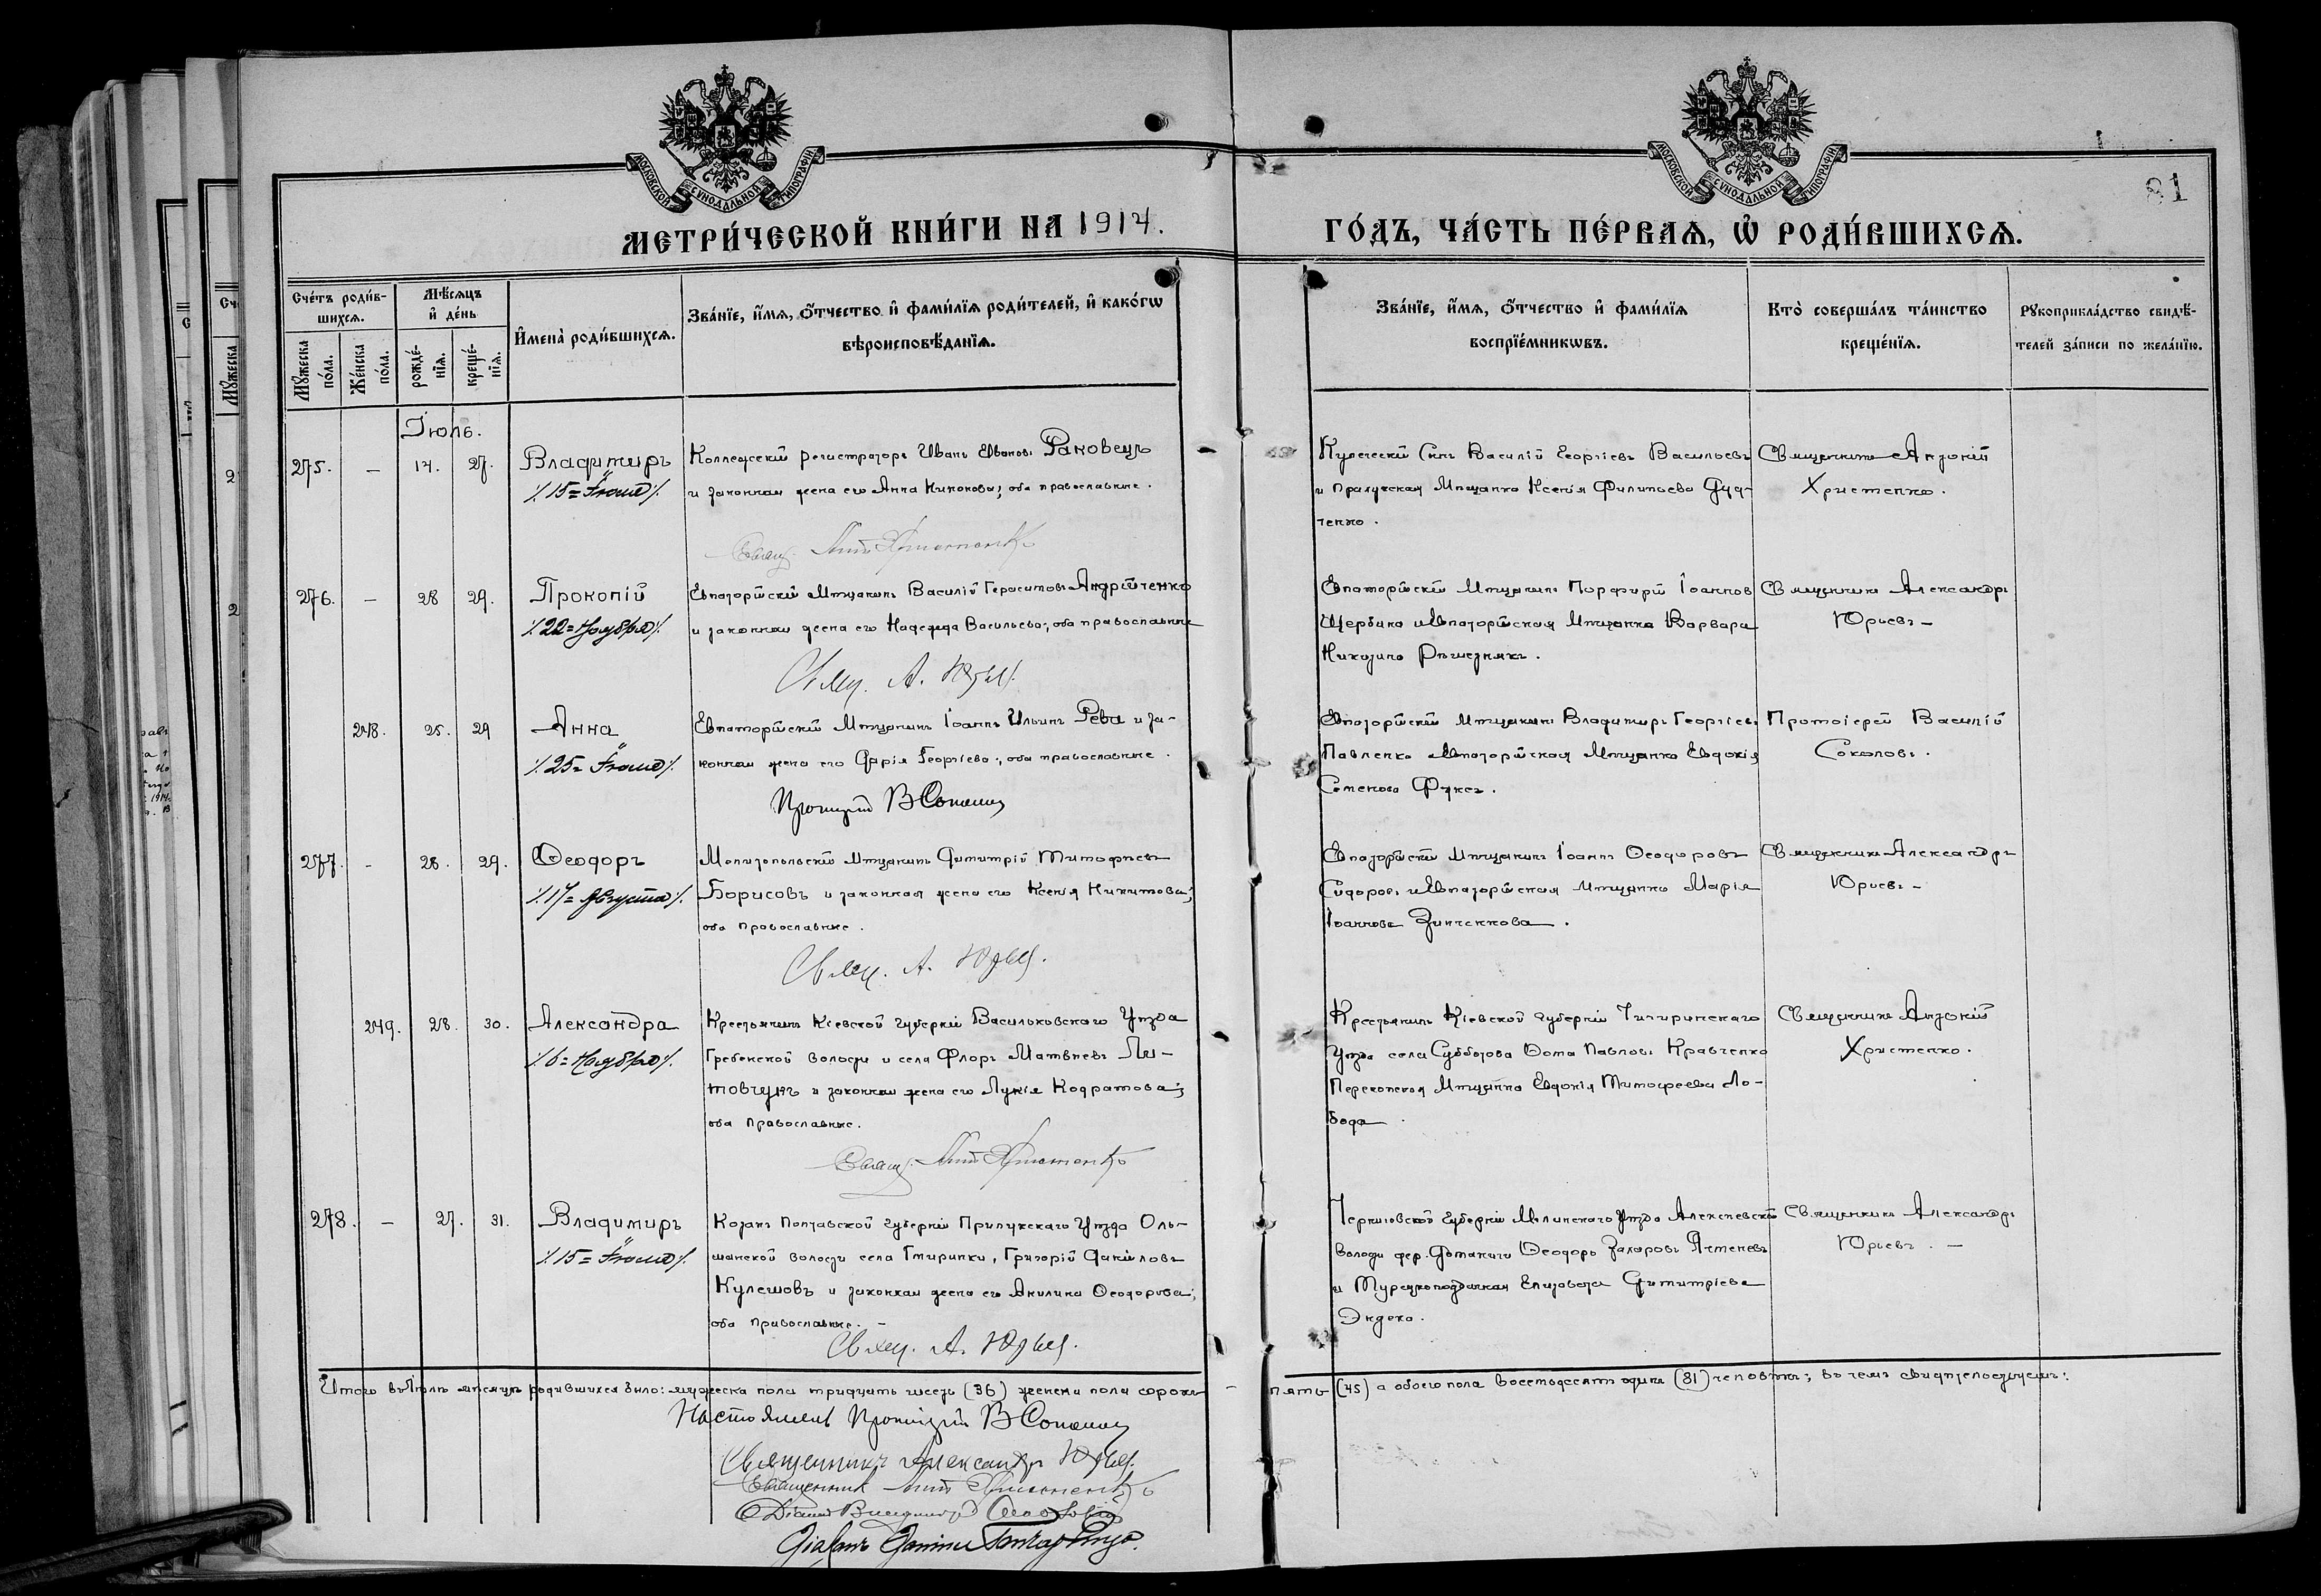 МОСКОВСКОЙ СѴНОДАЛЬНОЙ ТИПОГРАФІИ
МОСКОВСКОЙ СѴНОДАЛЬНОЙ ТИПОГРАФІИ
81
МЕТРИ́ЧЕСКОЙ КНИ́ГИ НА 1914.
ГО́ДЪ, ЧА́СТЬ ПЕ́РВАѦ, Ѽ РОДИ́ВШИХСѦ.
Сче́тъ роди́в-
шихсѧ.
Мѣ́сѧцъ
и҆ де́нь
Мꙋ́жеска
по́ла.
Же́нска
по́ла.
рожде́-
нїѧ.
креще́-
нїѧ.
И҆мена̀ роди́вшихсѧ.
Зва́нїе, и҆́мѧ, ѻ҆́тчество и҆ фами́лїѧ роди́телей, и҆ како́гѡ
вѣроисповѣ́данїѧ.
Зва́нїе, и҆́мѧ, ѻ҆́тчество и҆ фами́лїѧ
воспрїе́мникѡвъ.
Кто̀ соверша́лъ та́инство
креще́нїѧ.
Рꙋкоприкла́дство свидѣ́-
телей за́писи по жела́нїю.
Іюль.
275. — 14. 27. Владимиръ
15 = Іюля
Коллежскій регистраторъ Иванъ Ивановъ Раковецъ
и законная жена его Анна Никонова; оба православные.
Свящ.
Купеческій Сынъ Василій Георгіевъ Васильевъ
и Прилуцкая Мѣщанка Ксенія Филипьева Дуд-
ченко.
Священникъ Антоній
Христенко.
276. — 28 29. Прокопій
22 = Ноября
Евпаторійскій Мѣщанинъ Василій Герасимовъ Андрійченко
и законная жена его Надежда Васильева; оба православные
Свящ. А. Юрьев.
Евпаторійскій Мѣщанинъ Порфирій Іоанновъ
Щербина и Евпаторійская Мѣщанка Варвара
Священникъ Александръ
Юрьевъ —
248. 25. 29 Анна
25 = Іюля
Евпаторійскій Мѣщанинъ Іоаннъ Ильинъ Рева и за-
конная жена его Дарія Георгіева; оба православные.
Протоіерей В Соколовъ
Евпаторійскій Мѣщанинъ Владимиръ Георгіевъ
Павленко и Евпаторійская Мѣщанка Евдокія
Семенова Фуксъ.
Протоіерей Василій
Соколовъ.
277. — 28. 29. Ѳеодоръ
17 = Августа
Мелитопольскій Мѣщанинъ Димитрій Тимофѣевъ
Борисовъ и законная жена его Ксенія Никитова;
оба православные.
Свящ. А. Юрьев.
Евпаторійскій Мѣщанинъ Іоаннъ Ѳеодоровъ
Сидоровъ и Евпаторійская Мѣщанка Марія
Іоаннова Зинченкова.
Священникъ Александръ
Юрьевъ —
249. 28. 30. Александра
6 = Ноября
Крестьянинъ Кіевской губерніи Васильковскаго Уѣзда
Гребенской волости и села Флоръ Матвѣевъ Ли-
товчукъ и законная жена его Лукія Кодратова;
оба православные.
Свящ.
Крестьянинъ Кіевской губерніи Чигиринскаго
Уѣзда села Субботова Ѳома Павловъ Кравченко
Перекопская Мѣщанка Евдокія Тимофеева Ло-
бода.
Священникъ Антоній
Христенко.
278. — 27. 31. Владимиръ
15 = Іюля
Козакъ Полтавской губерніи Прилукскаго Уѣзда Оль-
шанской волости села Гмиринки, Григорій Даниловъ
Кулешовъ и законная жена его Акилина Ѳеодорова;
оба православные. —
Свящ. А. Юрьев.
Черниговской губерніи Мглинскаго Уѣзда Алексѣевской
волости дер. Ѳеодоръ Захаровъ
и Турецкоподданная Елизавета Димитріева
Эндеко.
Священникъ Александръ
Юрьевъ. —
Итого въ Іюлѣ мѣсяцѣ родившихся было: мужеска пола тридцать шесть (36) женска пола сорокъ — пять (45) а обоего пола восемьдесятъ одинъ (81) человѣкъ; въ чемъ свидѣтельствуемъ:
Настоятель Протоіерей В Соколовъ
Священникъ Александръ Юрьев.
Священникъ Ант. Христенко